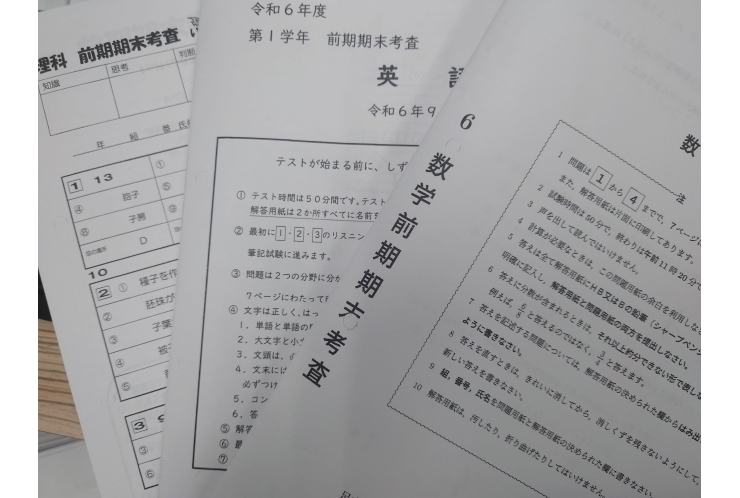 理科 前期期末考査
知識
思考
判断
年 組 番 氏
1 13 ①
④ 胞子 ⑤
⑥ 子房 ⑨
D
10
2 ① 種子を作
② 胚珠が
③ 子葉
④ 被子
⑤
3
③
⑥
令和6年度
第1学年 前期期末考査
英 語
令和6年9
テストが始まる前に、しず
① テスト時間は50分間です。テスト
解答用紙は2か所すべてに名前を
② 最初に1・2・3のリスニン
筆記試験に進みます。
③ 問題は2つの分野に分か
7ページにわたって印
④ 文字は正しく、はっ
1. 単語と単語の
2. 大文字と小文
3. 文頭は、
4. 文末に
必ずつけ
5. コン
6. 答
⑤ 解答
⑥
⑦
6
数学前期期末考査
数
注
1 問題は 1 から 4 までで、7ページに
また、解答用紙は片面に印刷してあります。
2 試験時間は50分で、終わりは午前11時20分で
3 声を出して読んではいけません。
4 計算が必要なときは、この問題用紙の余白を利用しな
5 答えは全て解答用紙にHB又はBの鉛筆(シャープペン
明確に記入し、解答用紙と問題用紙の両方を提出しなさい。
6 答えに分数が含まれるときは、それ以上約分できない形で表しな
例えば、6/8と答えるのではなく、3/4と答えます。
7 答えを記述する問題については、解答用紙の決められた欄からはみ出
ように書きなさい。
8 答えを直すときは、きれいに消してから、消しくずを残さないようにして、
新しい答えを書きなさい。
9 組、番号、氏名を問題用紙と解答用紙の決められた欄に書きなさい。
10 解答用紙は、汚したり、折り曲げたりしてはいけません。